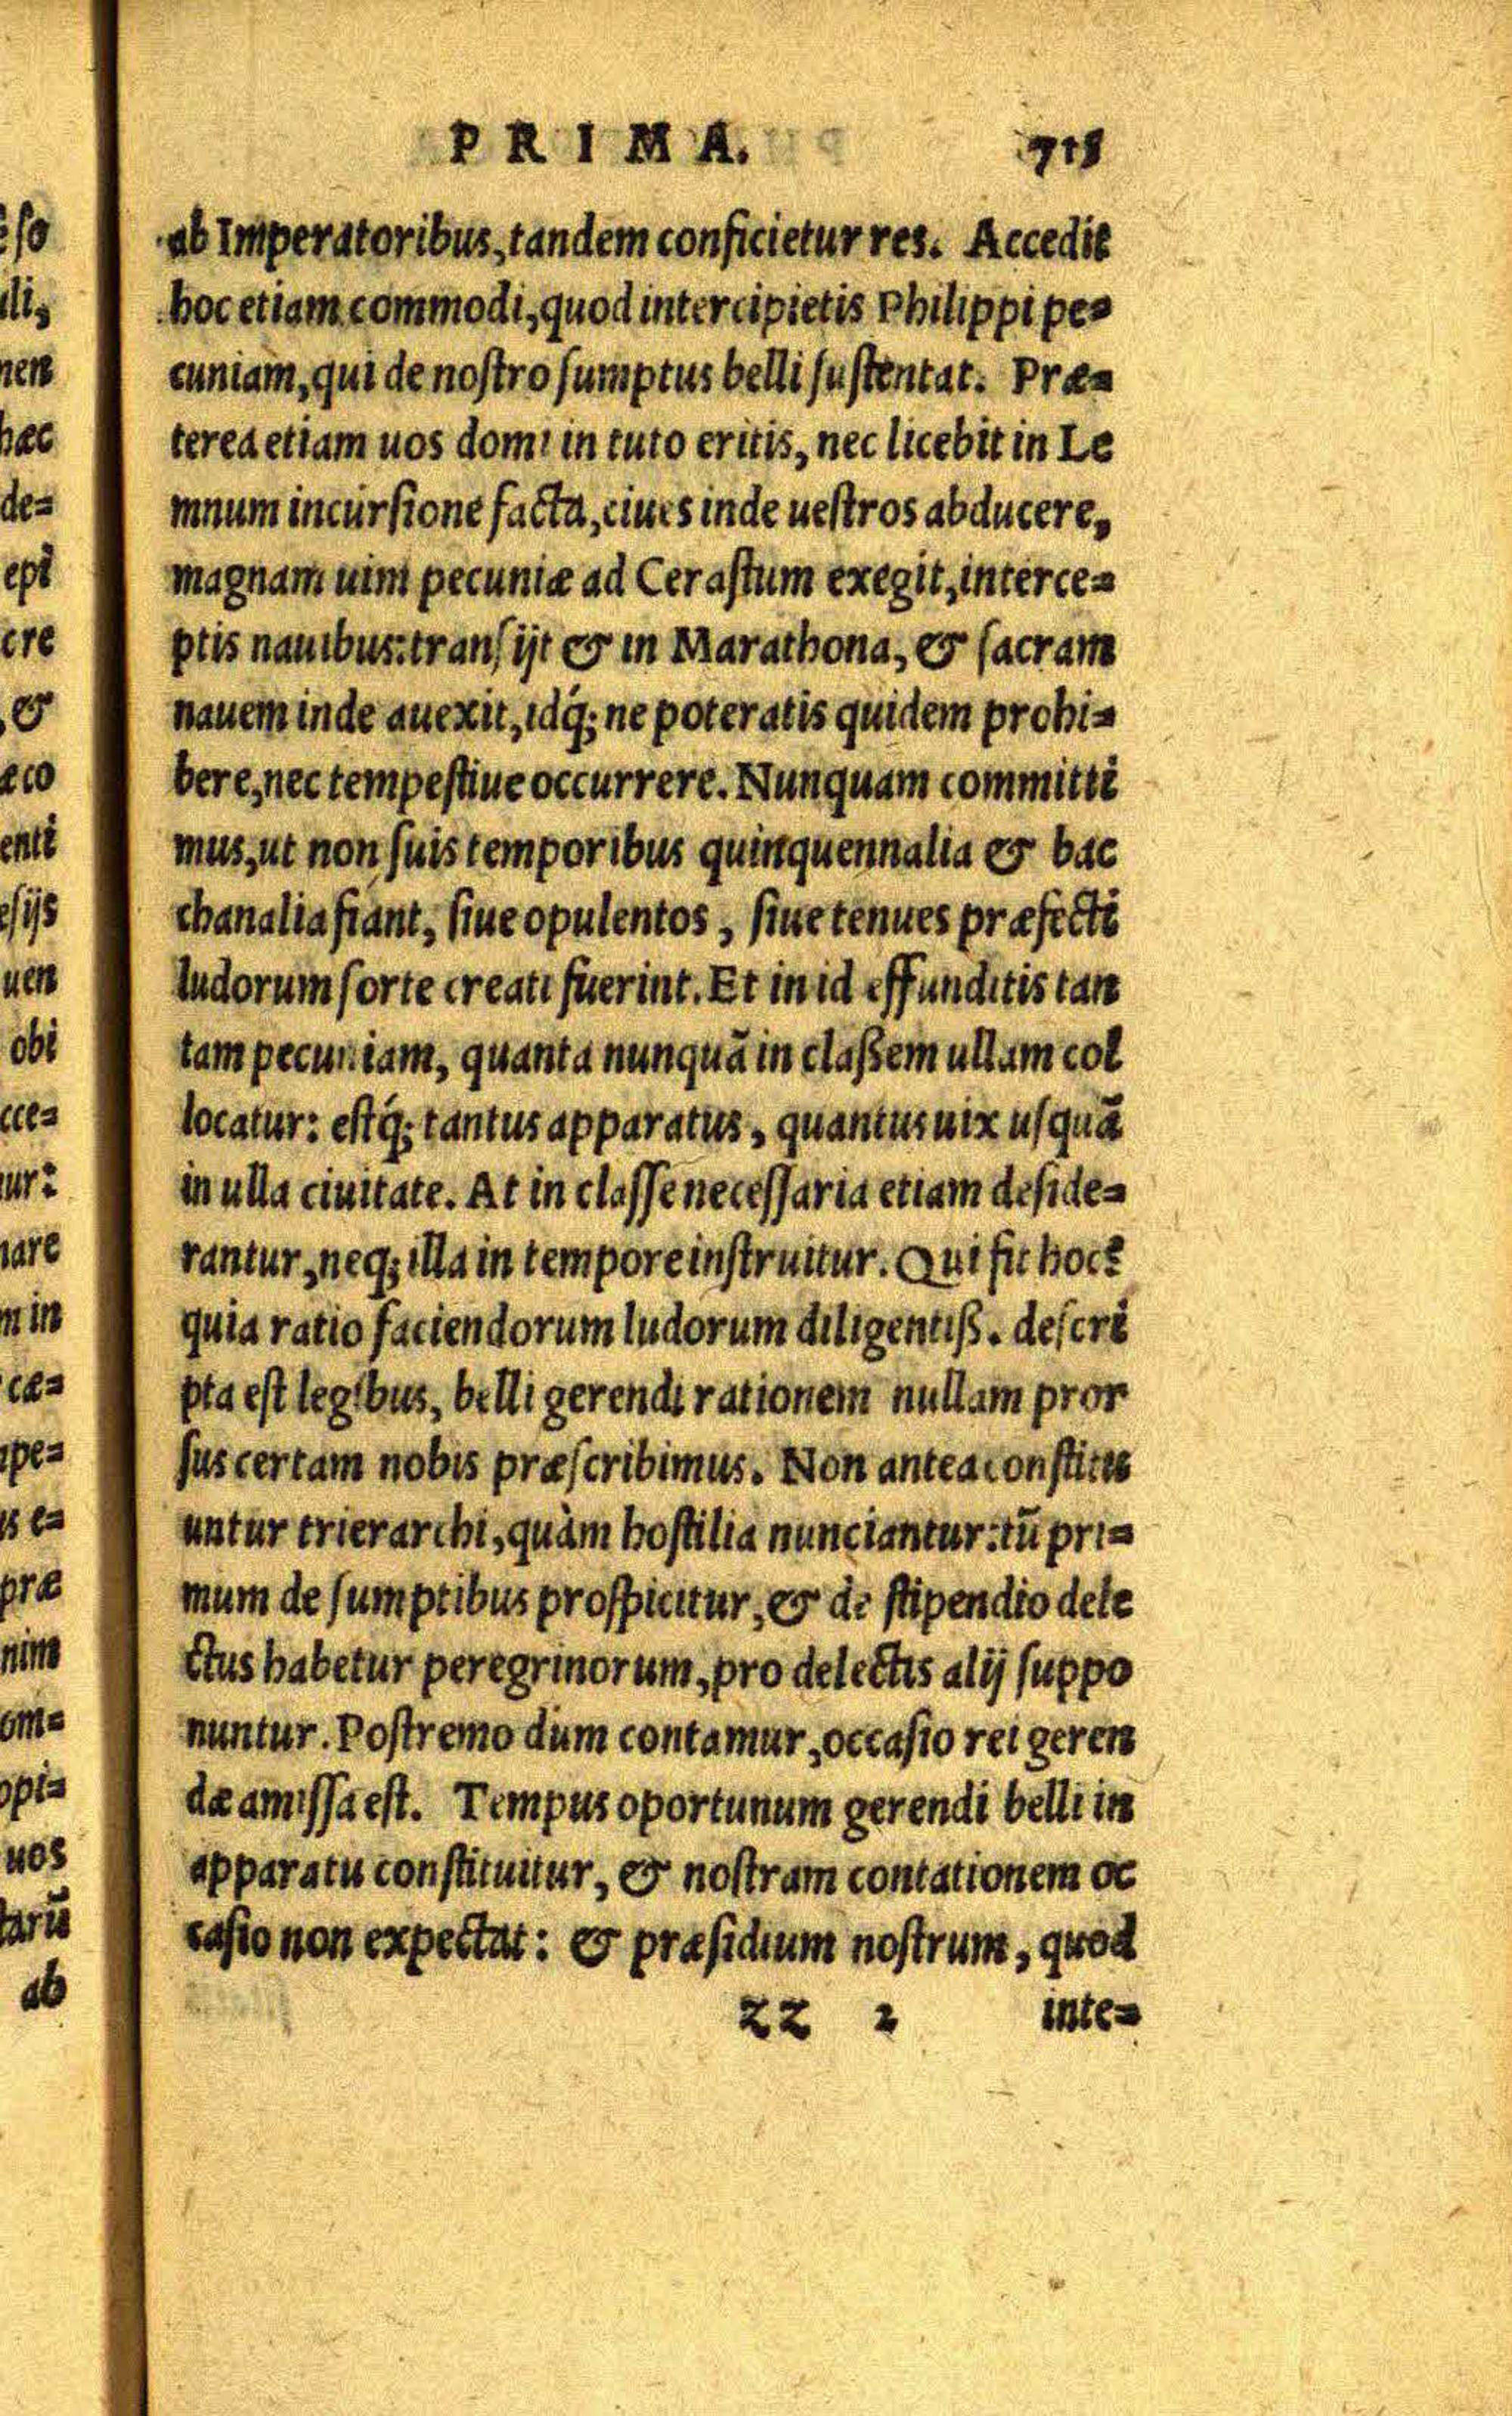 PRIMA. 715
ab Imperatoribus, tandem conficietur res. Accedit
hoc etiam commodi, quod intercipietis Philippi pe=
cuniam, qui de nostro sumptus belli sustentat. Præ=
terea etiam uos domi in tuto eritis, nec licebit in Le
mnum incursione facta, ciues inde uestros abducere,
magnam uim pecuniæ ad Cerastum exegit, interce=
ptis nauibus: transijt & in Marathona, & sacram
nauem inde auexit, idq́; ne poteratis quidem prohi=
bere, nec tempestiue occurrere. Nunquam committi
mus, ut non suis temporibus quinquennalia & bac
chanalia fiant, siue opulentos, siue tenues præfecti
ludorum sorte creati fuerint. Et in id effunditis tan
tam pecuniam, quanta nunquā in claßem ullam col
locatur: estq́; tantus apparatus, quantus uix usquā
in ulla ciuitate. At in classe necessaria etiam deside=
rantur, neq; illa in tempore instruitur. Qui fit hoc?
quia ratio faciendorum ludorum diligentiß. descri
pta est legibus, belli gerendi rationem nullam pror
sus certam nobis præscribimus. Non antea constitu
untur trierarchi, quàm hostilia nunciantur: tū pri=
mum de sumptibus prospicitur, & de stipendio dele
ctus habetur peregrinorum, pro delectis alij suppo
nuntur. Postremo dum contamur, occasio rei geren
dæ amissa est. Tempus oportunum gerendi belli in
apparatu constituitur, & nostram contationem oc
casio non expectat: & præsidium nostrum, quod
ZZ 2 inte=